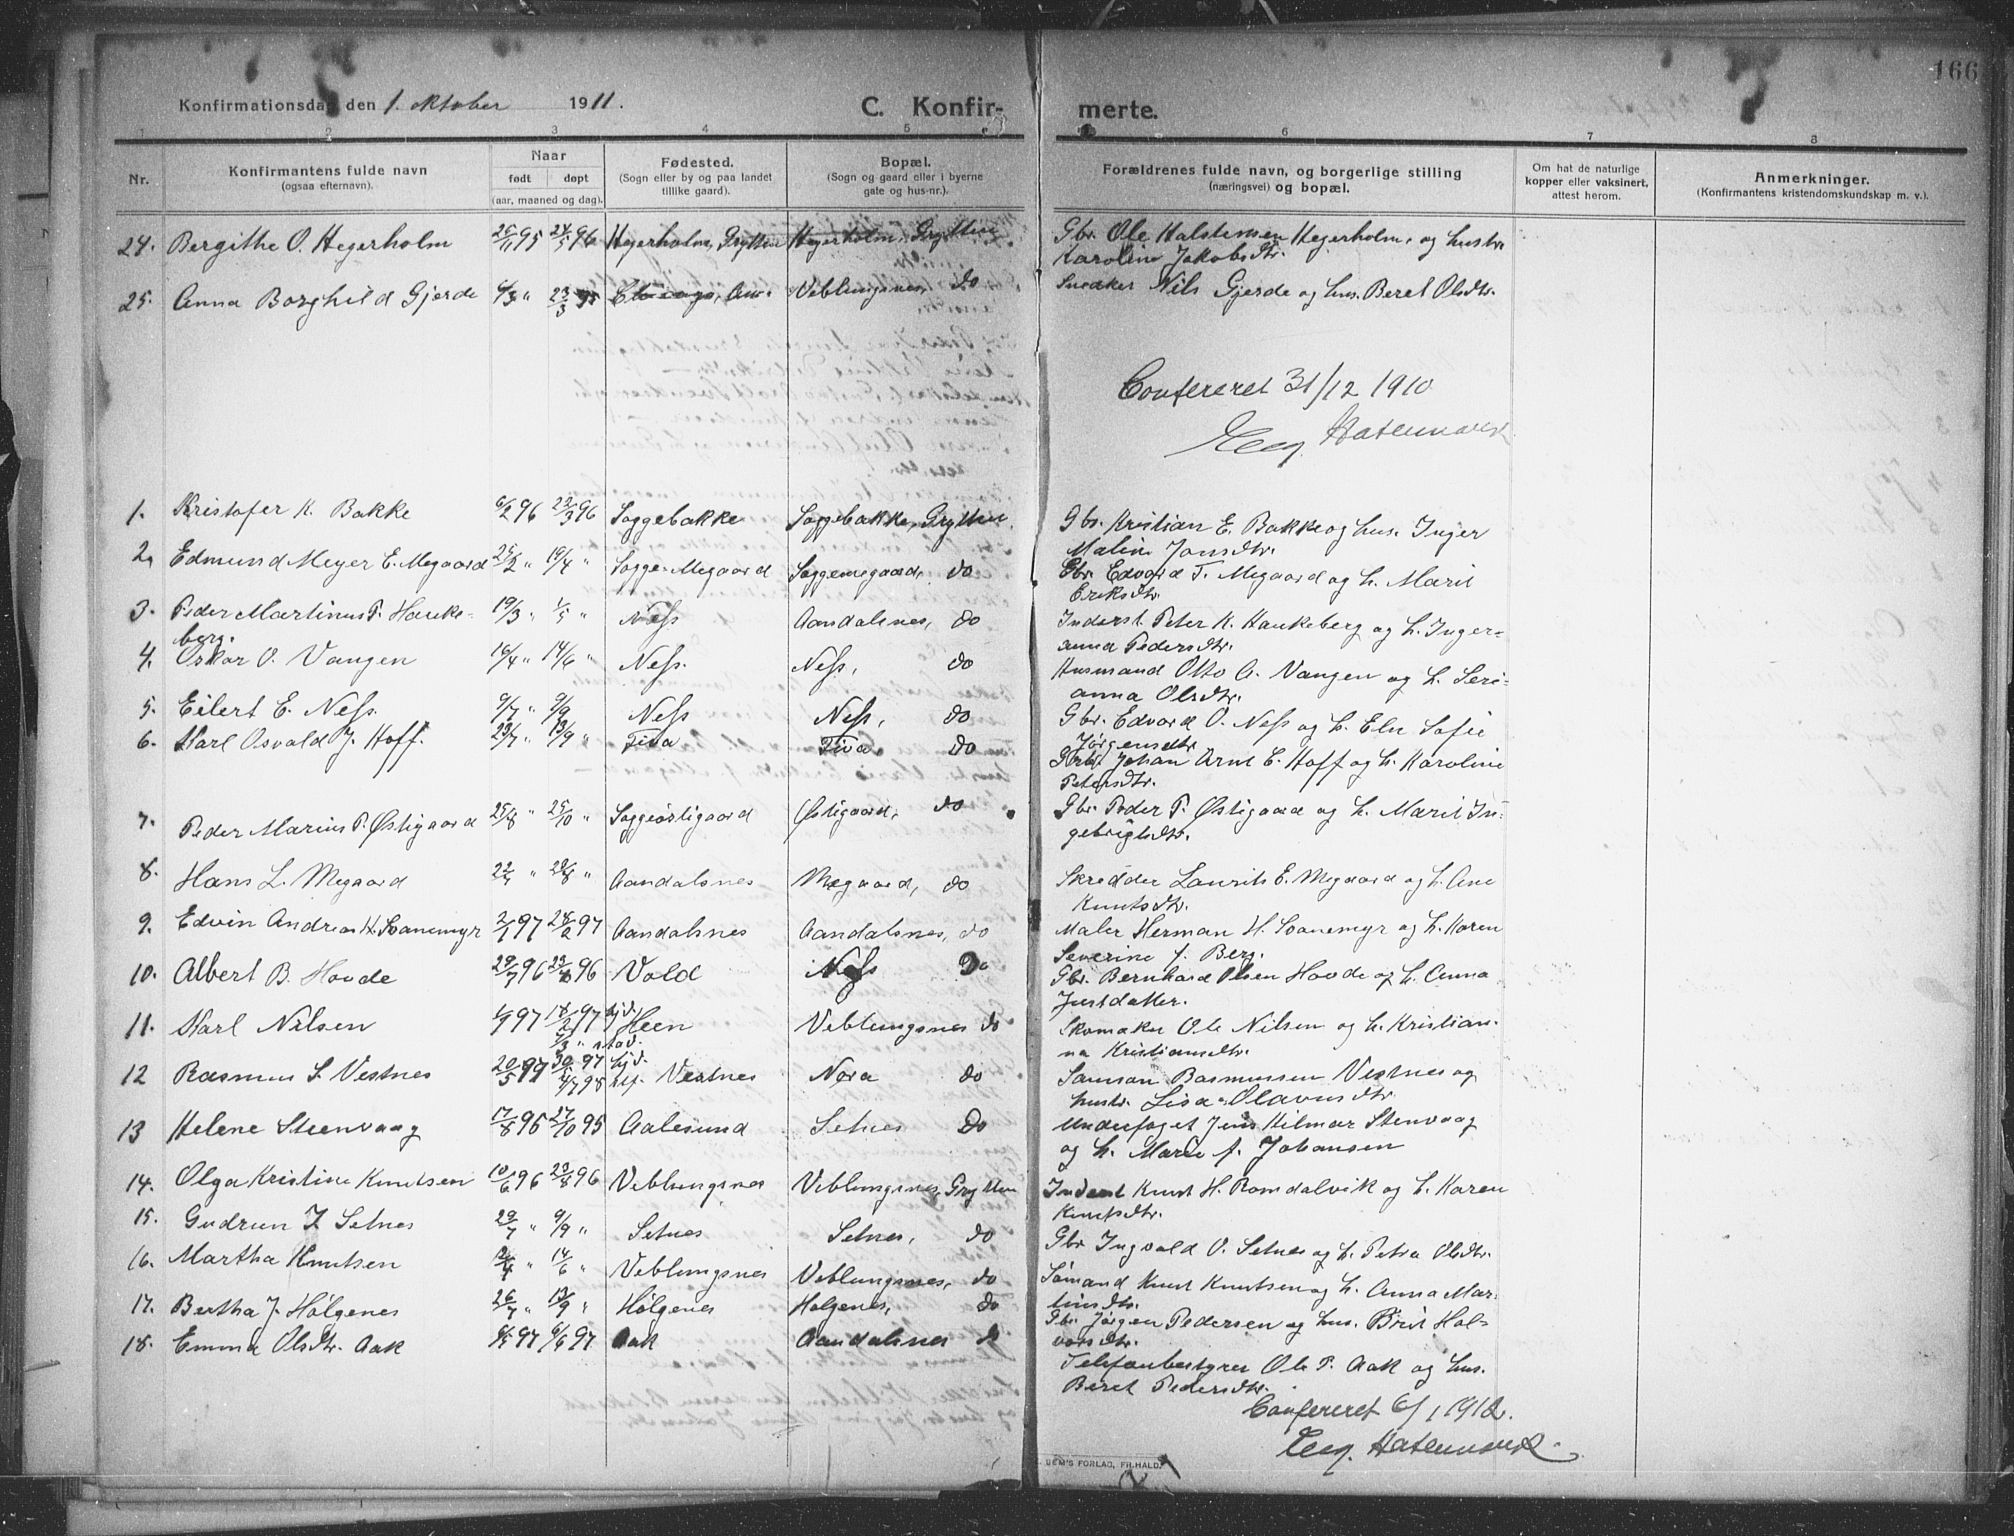 166
Konfirmationsdag den 1. oktober 1911.
C. Konfirmerte.
1 2 3 4 5 6 7 8
Nr.
Konfirmantens fulde navn
(ogsaa efternavn).
Naar
født døpt
(aar, maaned og dag).
Fødested.
(Sogn eller by og paa landet
tillike gaard).
Bopæl.
(Sogn og gaard eller i byerne
gate og hus-nr.).
Forældrenes fulde navn, og borgerlige stilling
(næringsvei) og bopæl.
Om hat de naturlige
kopper eller vaksinert,
attest herom.
Anmerkninger.
(Konfirmantens kristendomskundskap m. v.).
24. Bergithe O. Hegerholm 26/11 95 24/5 96 Hegerholm, Grytten Hegerholm, Grytten Gbr. Ole Halstensen Hegerholm, og hustr.
Karoline Jakobsdtr.
25. Anna Borghild Gjerde 4/3 " 23/3 95 Am. Veblungsnes, do Snedker Nils Gjerde og hus. Beret Olsdtr.
Confereret 31/12 1910
Hatlemark
1. Kristofer K. Bakke 6/2 96 22/3 96 Soggebakke Soggebakke, Grytten. Gbr. Kristian E. Bakke og hus. Inger
Malin Jonsdtr.
2. Edmund Meyer E. Megaard 25/2 " 19/4 " Sogge-Megaard Soggemegaard, do Gbr. Edvard T. Megaard og h. Marit
Eriksdtr.
3. Peder Martinus P. Haukeberg. 19/3 " 1/5 " Ness Aandalsnes, do Inderst Peter K. Haukeberg og h. Ingeranna Pedersdtr.
4. Oskar O. Vangen 16/4 " 14/6 " Ness. Ness, do Husmand Otto A. Vangen og h. Serianna Olsdtr.
5. Eilert E. Ness. 9/7 " 9/9 Ness Ness, do Gbr. Edvard O. Ness og h. Eln Sofie
Jørgensdtr.
6. Karl Osvald J. Hoff. 23/7 " 13/9 " Tiva Tiva, do Gbr. Johan Arnt E. Hoff og h. Karoline
Petersdtr.
7. Peder Marius P. Østigaard 25/8 " 25/10 " Soggeøstigaard Østigaard, do Gbr. Peder P. Østigaard og h. Marit Ingebrigtsdtr.
8. Hans L. Megaard " 28/8 " Aandalsnes Megaard, do Skrædder Laurits E. Megaard og h. Ane
Knutsdtr.
9. Edvin Andreas H. Svanemyr 2/1 97 28/2 97 Aandalsnes Aandalsnes, do Maler Herman H. Svanemyr og h. Karen
Severine f. Berg.
10. Albert B. Hovde 29/7 96 23/8 96 Vold Ness Do Gbr. Bernhard Olsen Hovde og h. Anna
Justdatter.
11. Karl Nilsen 1/9 97 18/2 97 hjd. Heen Veblungsnes do Skomaker Ole Nilsen og h. Kristianna Kristiansdtr.
1/3 " stad.
12 Rasmus S. Vestnes 20/5 97 30/5 97 hjd. Vestnes Nora do Samson Rasmussen Vestnes og
4/7 98
hustr. Lisa Olavusdtr.
13 Helene Steenvaag 17/8 95 27/10 95 Aalesund Setnes Do Underfoget Jens Hilmar Stenvaag
og h. Marie f. Johansen
14. Olga Kristine Knudsen 10/6 96 23/8 96 Veblungsnes Veblungsnes, Grytten Inderst Knut H. Romdalvik og h. Karen
Knutsdtr.
15. Gudrun I. Setnes 29/7 " 9/9 " Setnes Setnes, do Gbr Ingvald O. Setnes og h. Petra Olsdtr.
16. Martha Knutsen 12/4 " 14/6 " Veblungsnes Veblungsnes, do Sømand Knut Knutsen og h. Anna Martinsdtr.
17. Bertha J. Hølgenes 26/7 " 13/9 " Hølgenes Hølgenes, do Gbr Jørgen Pedersen og hus. Brit Halvorsdtr.
18. Emma Olsdtr. Aak 97 6/6 97 Aak Aandalsnes do Telefonbestyrer Ole P. Aak og hus.
Beret Pedersdtr.
Confereret 6/1 1912.
Hatlemark
SEM'S FORLAG, FR.HALD.